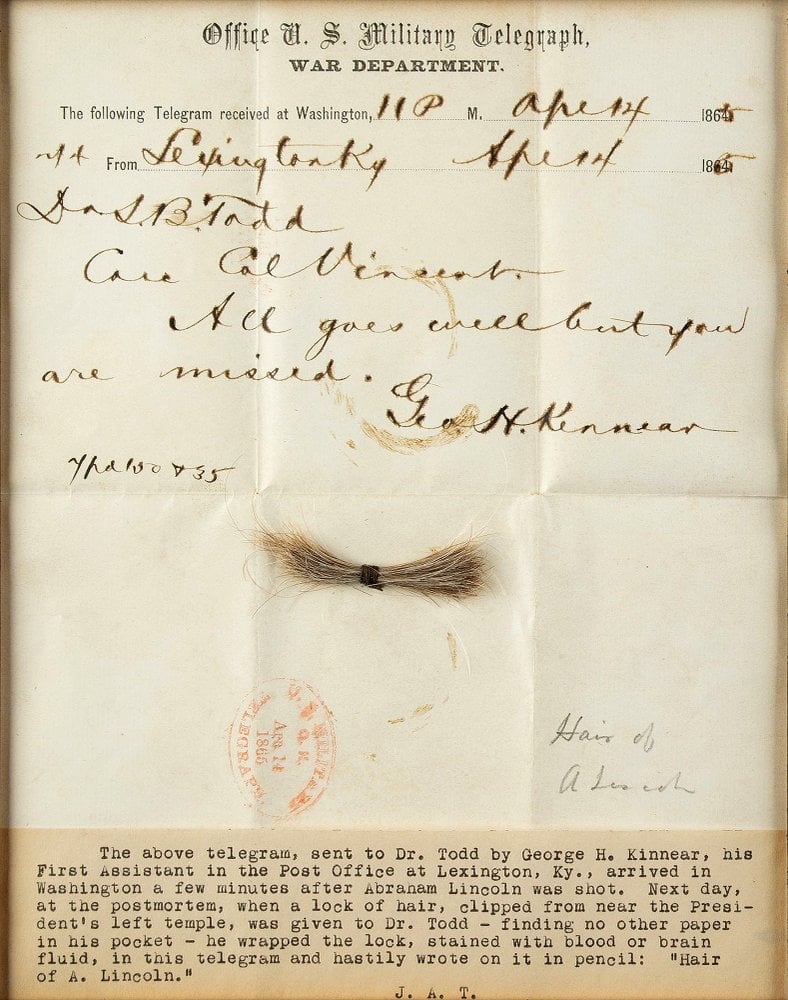 Office U. S. Military Telegraph,
WAR DEPARTMENT.
The following Telegram received at Washington, 11 P M. Apl 14 1865
From Lexington Ky Apl 14 1865
Dr L. B. Todd
Care Col Vincent.
All goes well but you
are missed.
Geo. H. Kinnear
U. S. MILITARY
Apr 14
1865
TELEGRAPH
Hair of
A Lincoln
The above telegram, sent to Dr. Todd by George H. Kinnear, his
First Assistant in the Post Office at Lexington, Ky., arrived in
Washington a few minutes after Abraham Lincoln was shot. Next day,
at the postmortem, when a lock of hair, clipped from near the Presi-
dent's left temple, was given to Dr. Todd - finding no other paper
in his pocket - he wrapped the lock, stained with blood or brain
fluid, in this telegram and hastily wrote on it in pencil: "Hair
of A. Lincoln."
J. A. T.